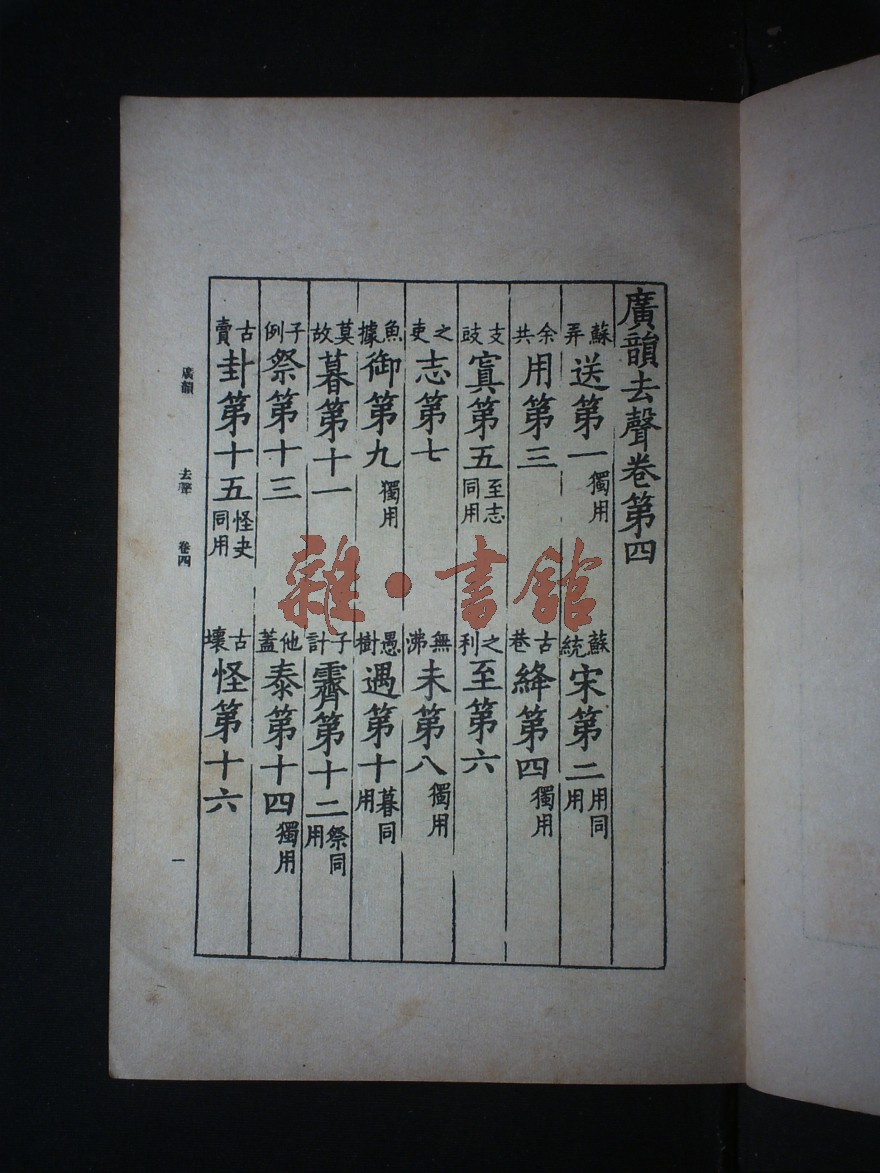 廣韻去聲卷第四
蘇弄送第一獨用　蘇統宋第二用同用
余共用第三　古巷絳第四獨用
支豉寘第五至志同用　之利至第六
之吏志第七　無沸未第八獨用
魚據御第九獨用　愚樹遇第十暮同用
莫故暮第十一　子計霽第十二祭同用
子例祭第十三　他蓋泰第十四獨用
古賣卦第十五怪夬同用　古壞怪第十六
廣韻　去聲　卷四　一
雜·書館